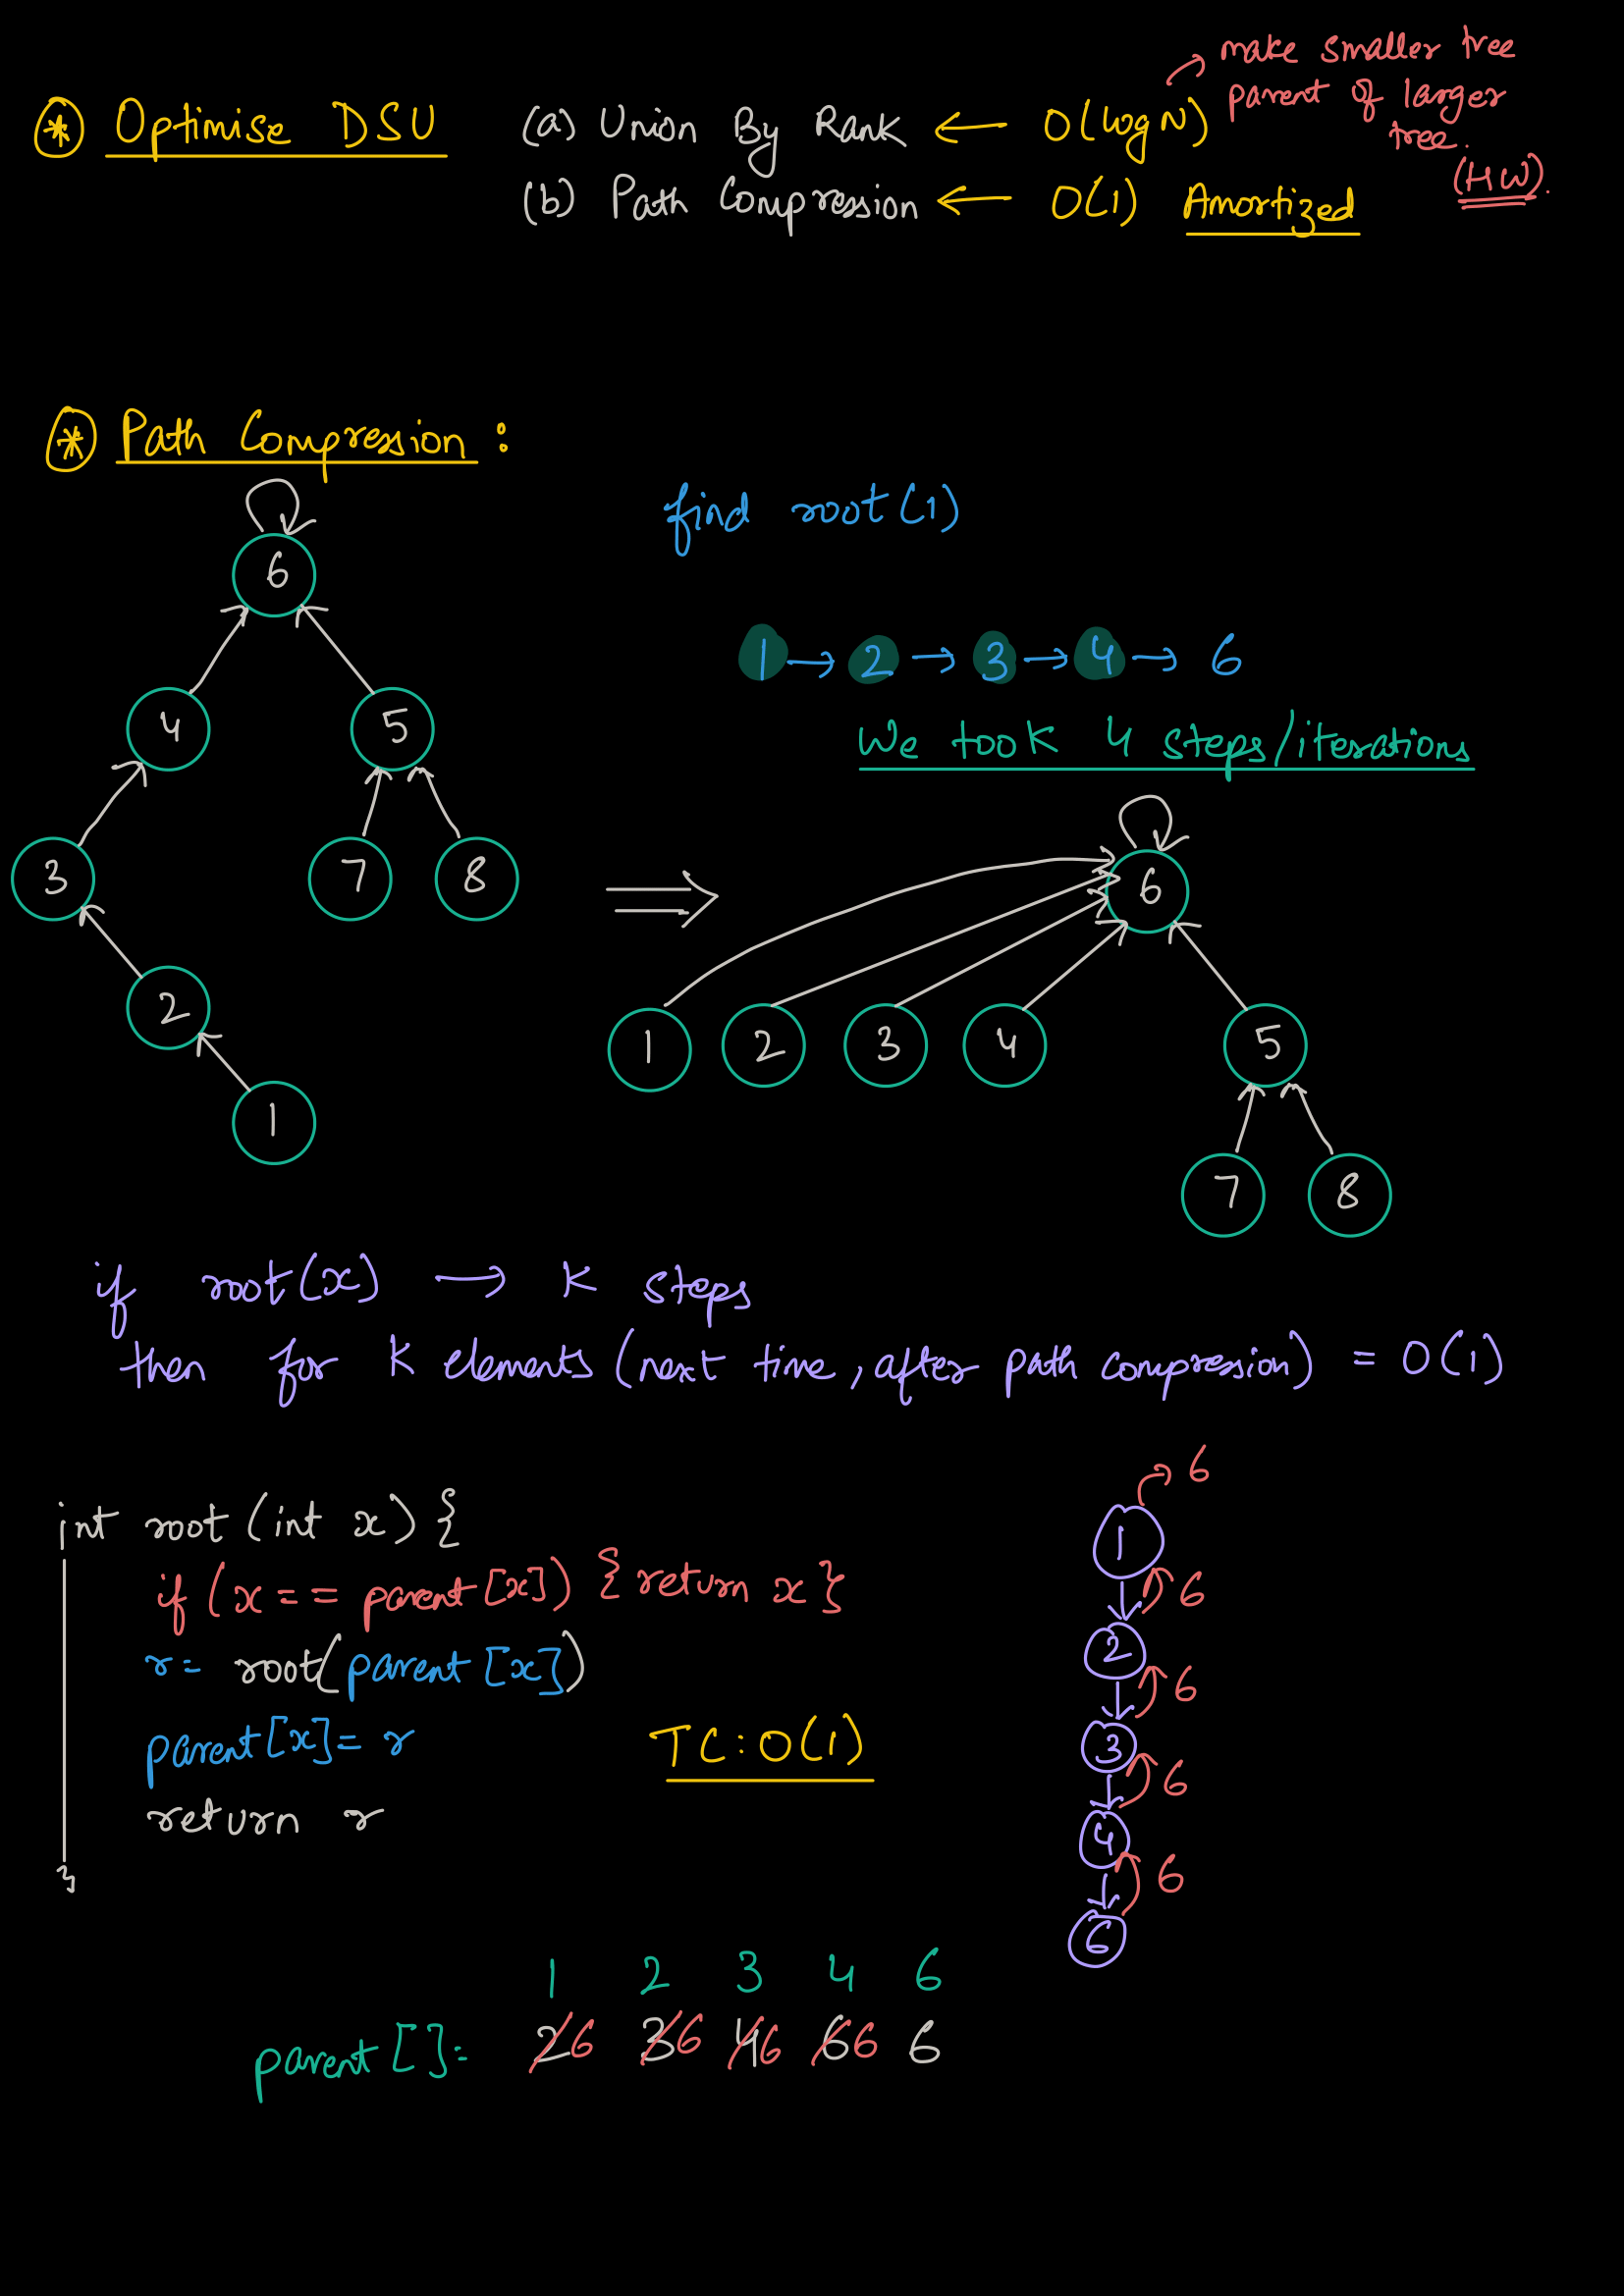 * Optimise DSU (a) Union By Rank ← O(log N)
make smaller tree
parent of larger
tree.
(HW).
(b) Path Compression ← O(1) Amortized
* Path Compression :
find root(1)
6
1 → 2 → 3 → 4 → 6
4 5
We took 4 steps/iterations
3 7 8
⇒ 6
2
1 2 3 4 5
1
7 8
if root(x) → K steps
then for K elements (next time, after path compression) = O(1)
int root(int x) {
if (x == parent[x]) { return x }
r = root(parent[x])
parent[x] = r
return r
}
TC: O(1)
6
1
6
2
6
3
6
4
6
6
1 2 3 4 6
parent[]: 26 36 46 66 6